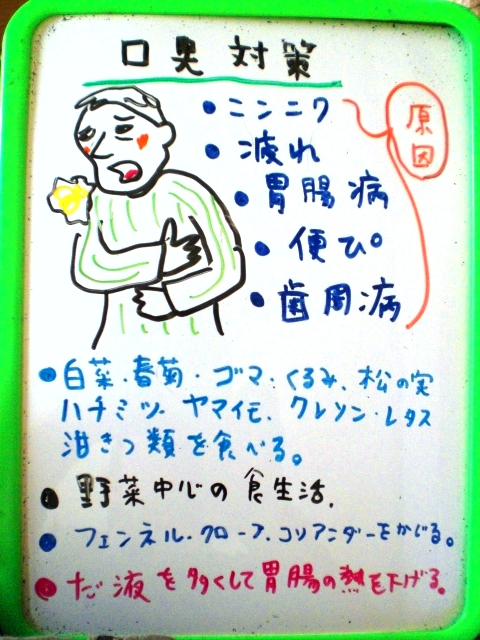 口臭対策
原因
・ニンニク
・疲れ
・胃腸病
・便ぴ。
・歯周病
・白菜・春菊・ゴマ・くるみ、松の実
ハチミツ、ヤマイモ、クレソン・レタス
泔きつ類を食べる。
・野菜中心の食生活.
・フェンネル・クローブ、コリアンダーをかじる。
・だ液を多くして胃腸の熱を下げる。